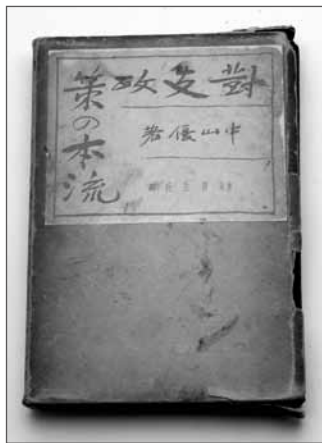 對支政
策の本流
中山優著